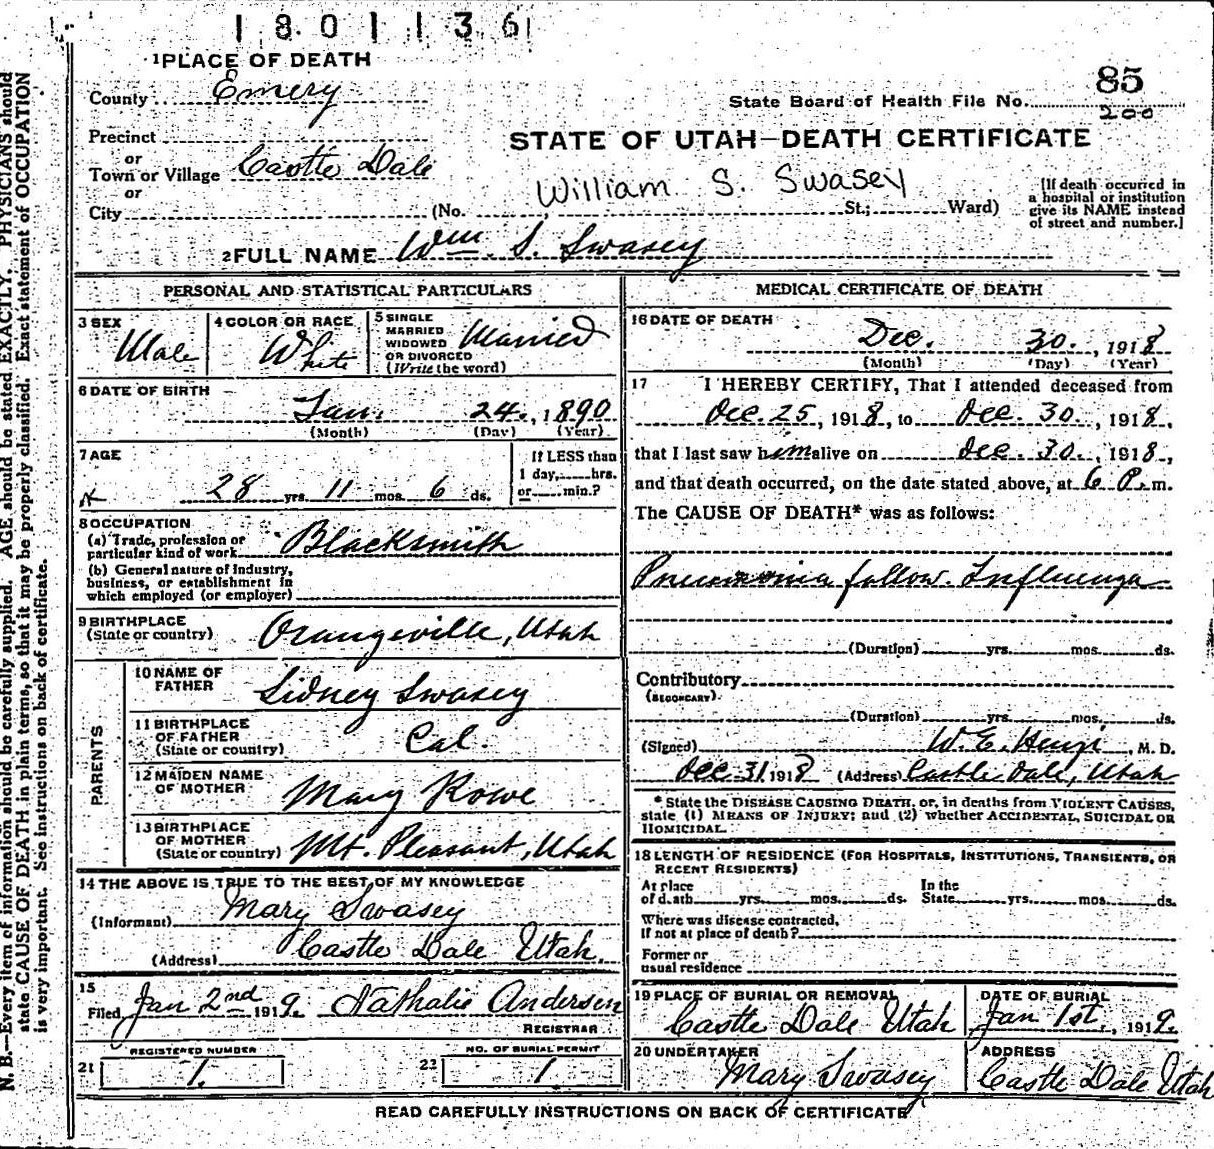 1801136
1 PLACE OF DEATH
County Emery
85
State Board of Health File No. 200
Precinct
or
STATE OF UTAH—DEATH CERTIFICATE
Town or Village Castle Dale
or
William S. Swasey
City (No. St.; Ward)
[If death occurred in
a hospital or institution
give its NAME instead
of street and number.]
2 FULL NAME Wm. S. Swasey
PERSONAL AND STATISTICAL PARTICULARS
3 SEX
Male
4 COLOR OR RACE
White
5 SINGLE
MARRIED
WIDOWED
OR DIVORCED
(Write the word)
Married
6 DATE OF BIRTH
Jan. 24, 1890
(Month) (Day) (Year)
7 AGE
28 yrs. 11 mos. 6 ds.
If LESS than
1 day, hrs.
or min.?
8 OCCUPATION
(a) Trade, profession or
particular kind of work Blacksmith
(b) General nature of industry,
business, or establishment in
which employed (or employer)
9 BIRTHPLACE
(State or country) Orangeville, Utah
PARENTS
10 NAME OF
FATHER
Sidney Swasey
11 BIRTHPLACE
OF FATHER
(State or country)
Cal.
12 MAIDEN NAME
OF MOTHER
Mary Rowe
13 BIRTHPLACE
OF MOTHER
(State or country)
Mt. Pleasant, Utah
14 THE ABOVE IS TRUE TO THE BEST OF MY KNOWLEDGE
(Informant) Mary Swasey
(Address) Castle Dale Utah
15
Filed Jan 2nd 1919. Nathalie Andersen
REGISTRAR
REGISTERED NUMBER
21 1.
NO. OF BURIAL PERMIT
22 1
MEDICAL CERTIFICATE OF DEATH
16 DATE OF DEATH
Dec. 30., 1918
(Month) (Day) (Year)
17 I HEREBY CERTIFY, That I attended deceased from
Dec. 25, 1918, to Dec. 30., 1918,
that I last saw him alive on Dec. 30., 1918,
and that death occurred, on the date stated above, at 6 P. m.
The CAUSE OF DEATH* was as follows:
Pneumonia follow. Influenza
(Duration) yrs. mos. ds.
Contributory
(SECONDARY)
(Duration) yrs. mos. ds.
(Signed) W. E. , M. D.
Dec 31 1918 (Address) Castle Dale, Utah
* State the DISEASE CAUSING DEATH, or, in deaths from VIOLENT CAUSES,
state (1) MEANS OF INJURY; and (2) whether ACCIDENTAL, SUICIDAL OR
HOMICIDAL.
18 LENGTH OF RESIDENCE (FOR HOSPITALS, INSTITUTIONS, TRANSIENTS, OR
RECENT RESIDENTS)
At place
of death yrs. mos. ds.
In the
State yrs. mos. ds.
Where was disease contracted,
If not at place of death?
Former or
usual residence
19 PLACE OF BURIAL OR REMOVAL
Castle Dale Utah
DATE OF BURIAL
Jan 1st, 1919.
20 UNDERTAKER
Mary Swasey
ADDRESS
Castle Dale Utah
READ CAREFULLY INSTRUCTIONS ON BACK OF CERTIFICATE
N. B.—Every item of information should be carefully supplied. AGE should be stated EXACTLY. PHYSICIANS should
state CAUSE OF DEATH in plain terms, so that it may be properly classified. Exact statement of OCCUPATION
is very important. See instructions on back of certificate.